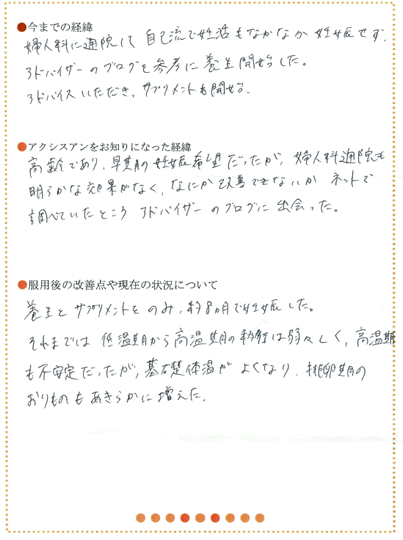 ●今までの経緯
婦人科に通院して自己流で妊活もなかなか妊娠せず、
アドバイザーのブログを参考に養生開始した。
アドバイスいただき、サプリメントも開始。
●アクシスアンをお知りになった経緯
高齢であり、早期の妊娠希望だったが、婦人科通院も
明らかな効果がなく、なにか改善できないかネットで
調べていたところ アドバイザーのブログに出会った。
●服用後の改善点や現在の状況について
養生とサプリメントとのみ、約8カ月で妊娠した。
それまでは 低温期から高温期の移行は弱々しく、高温期
も不安定だったが、基礎体温がよくなり、排卵期の
おりものもあきらかに増えた。